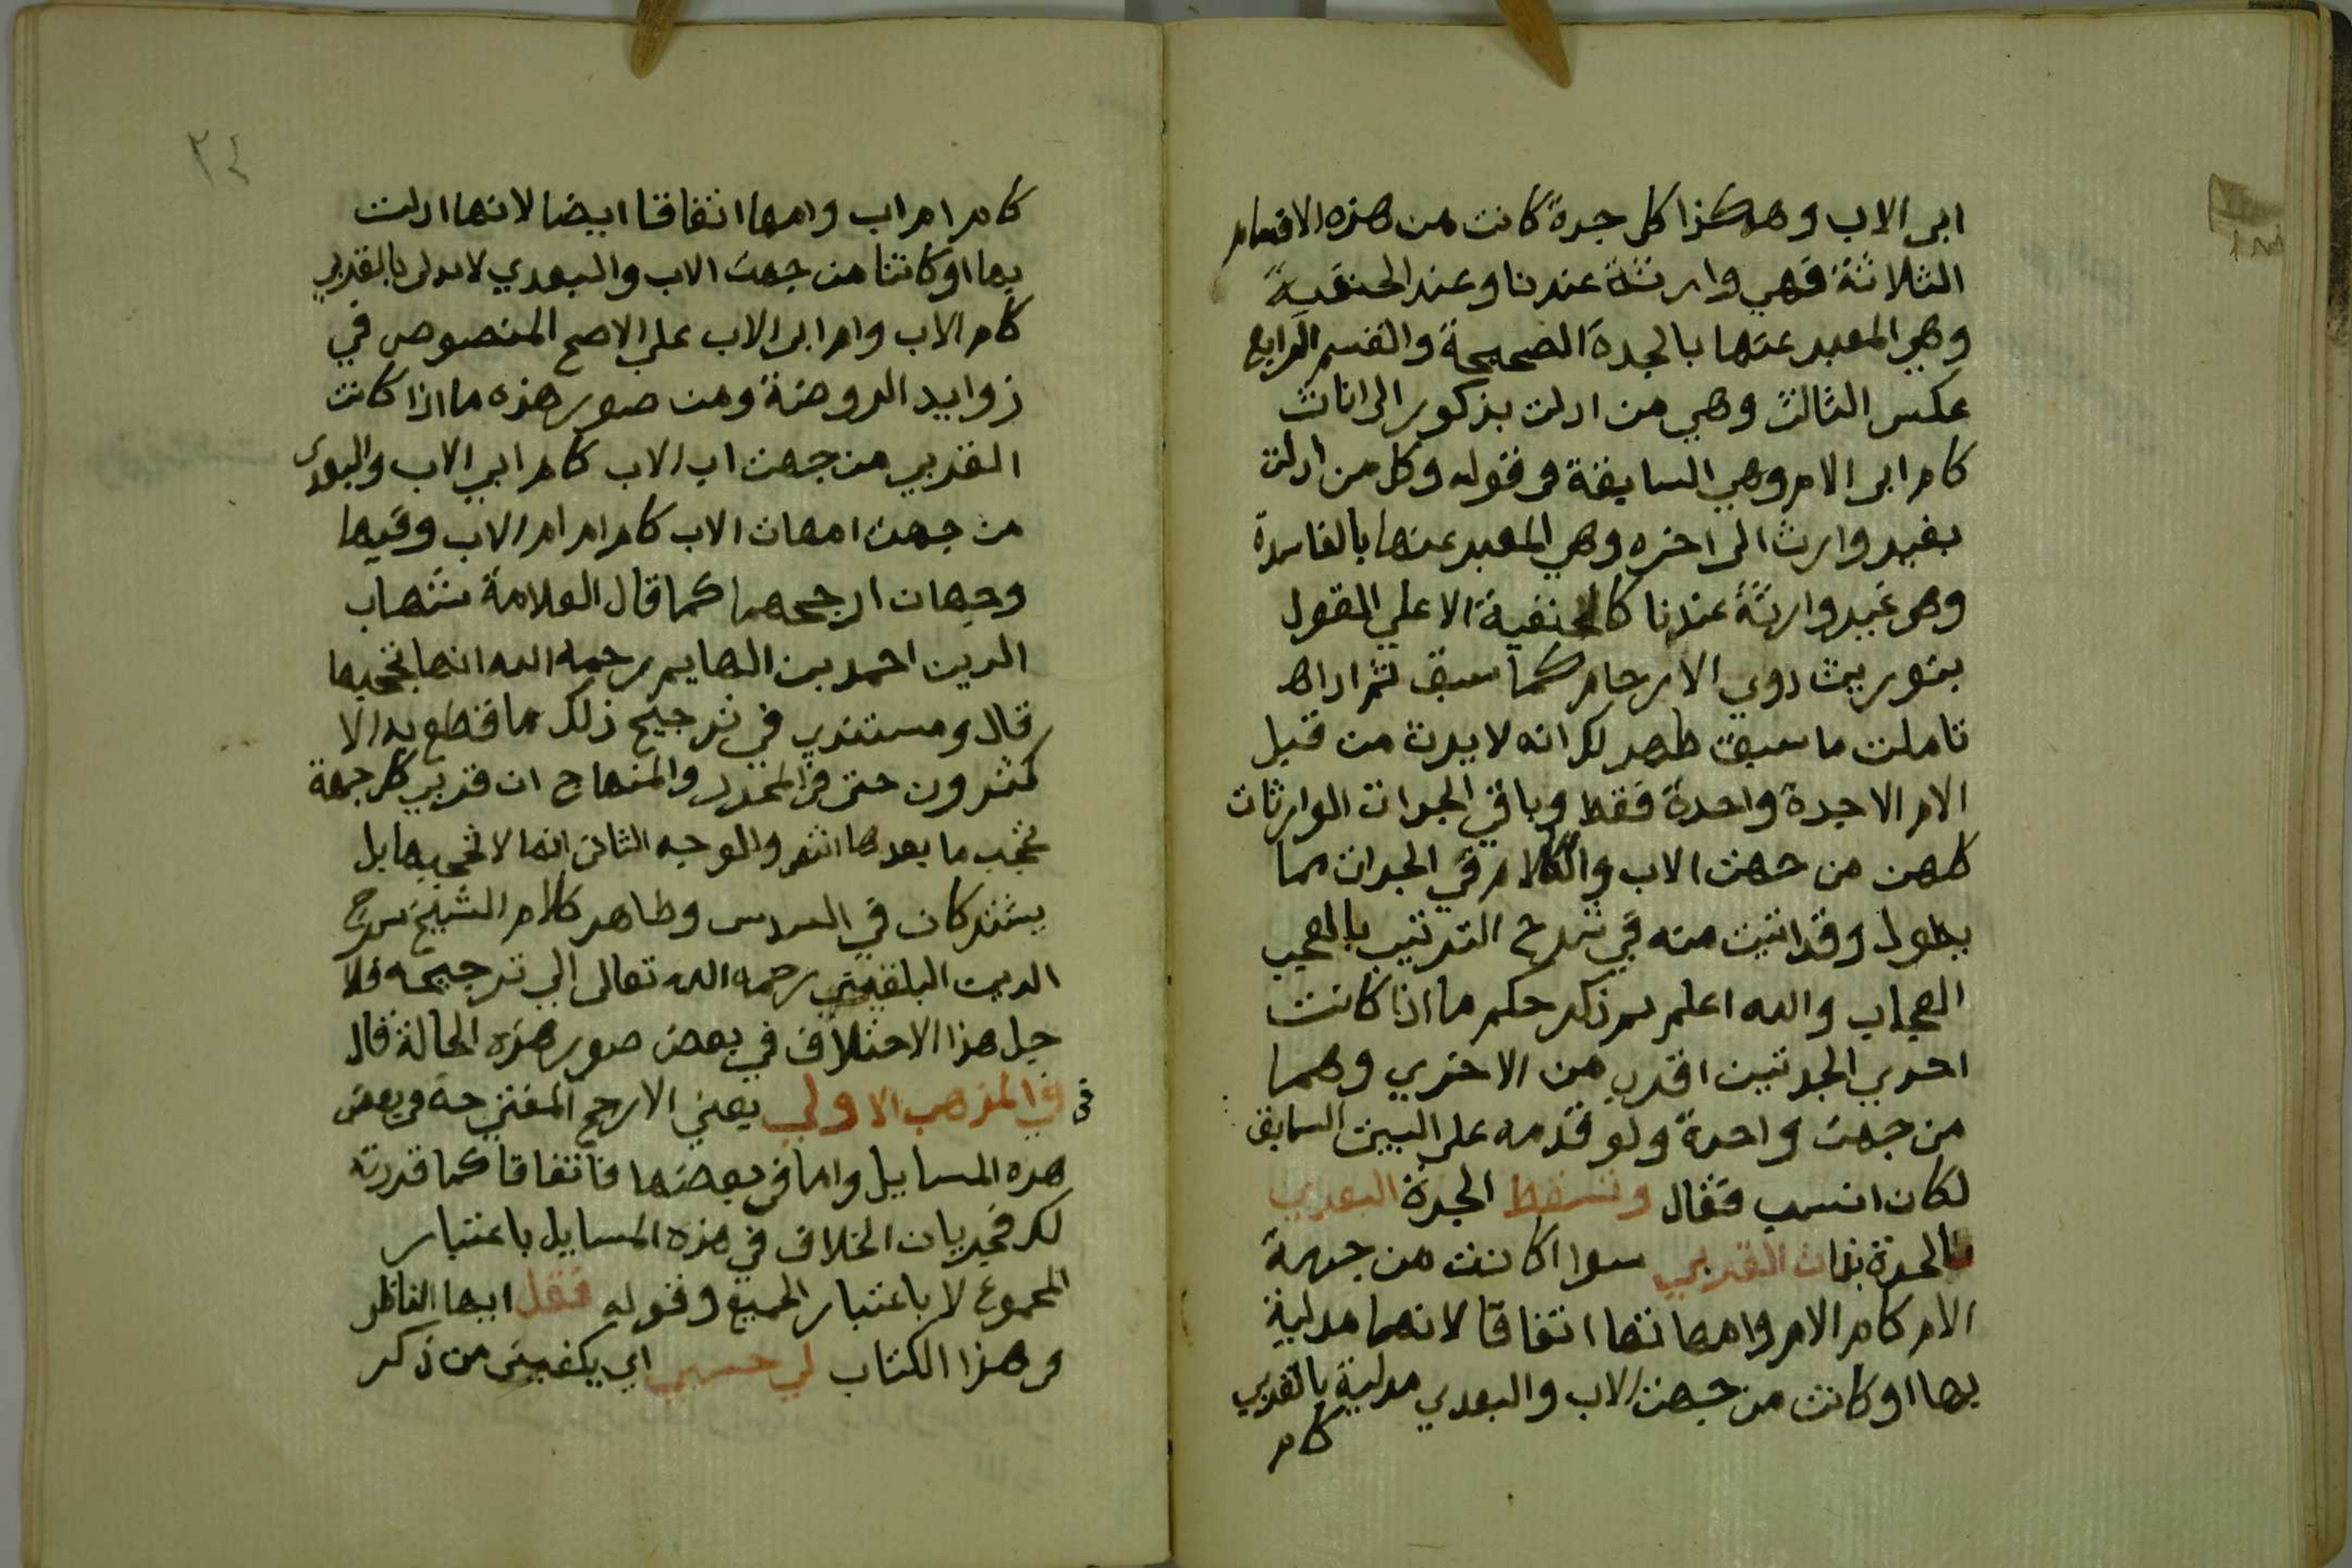 ابى الاب وهكذا كل جدة كانت من هذه الاقسام
الثلاثة فهي وارثة عندنا وعند الحنفية
وهي المعبر عنها بالجدة الصحيحة والقسم الرابع
عكس الثالث وهي من ادلت بذكور الى اناث
كام ابى الام وهي السابقة في قوله وكل من ادلت
بغير وارث الى اخره وهي المعبر عنها بالفاسدة
وهى غير وارثة عندنا كالحنفية الا علي القول
بتوريث دوي الارحام كما سبق ثم اداه
تاملت ما سبق ظهر لك انه لا يرث من قبل
الام الا جدة واحدة فقط وباقي الجدات الوارثات
كلهن من جهت الاب والكلام في الجدات مما
يطول وقد اتيت منه في شرح الترتيب بالعجب
العجاب والله اعلم ثم ذكر حكم ما اذا كانت
احدي الجدتين اقرب من الاخري وهما
من جهت واحدة ولو قدمه على البيت السابق
لكان انسب فقال وتسقط الجدة البعدي
بالجدة ذات القربي سوا كانت من جهة
الام كام الام وامهاتها اتفاقا لانهما مدلية
بها او كانت من جهت الاب والبعدي مدلية بالقربي
كام
٢٤
كام ام اب وامها اتفاقا ايضا لانها ادلت
بها او كانتا من جهت الاب والبعدي لا تدلى بالقربي
كام الاب وام ابى الاب علي الاصح المنصوص في
زوايد الروضة ومن صور هذه ما اذا كانت
القربي من جهت اب الاب كام ابي الاب والبعدى
من جهت امهات الاب كام ام ام الاب وفيها
وجهان ارجحهما كما قال العلامة شهاب
الدين احمد بن الهايم رحمه الله انها تحجبها
قال ومستندي في ترجيح ذلك ما قطع به الا
كثرون حتى في المحرر والمنهاج ان قربي كل جهة
تحجب ما بعدها انتهى والوجه الثاني انها لا تحجبها بل
يشتركان في السدس وظاهر كلام الشيخ سراج
الدين البلقيني رحمه الله تعالى الي ترجيحه فلا
جل هذا الاختلاف في بعض صور هذه الحالة قال
في
في المذهب الاولي يعني الارجح المفتى به في بعض
هده المسايل واما في بعضها فاتفاقا كما قررته
لك فجريان الخلاف في هذه المسايل باعتبار
المجموع لا باعتبار الجميع وقوله فقل ايها الناظر
في هذا الكتاب لي حسبي اي يكفيني من ذكر